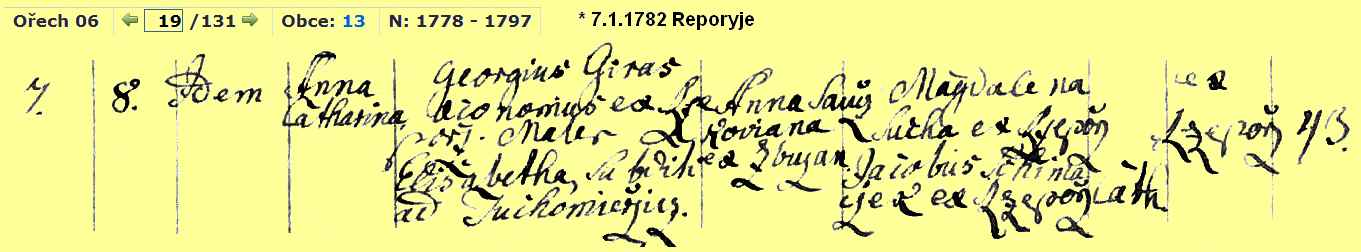 Ořech 06 19 /131 Obce: 13 N: 1778 - 1797 * 7.1.1782 Reporyje
7. 8. Idem Anna Catharina
Georgius Giras
ex
Mater
Elisabetha, subdit
ad Tuchomierzicz.
Anna
koviana
ex Zbuzan
Magdalena
Sucha ex Rzepoři
Jacobus Schima
ex Rzepoři Cath.
ex
Rzepoři 43.